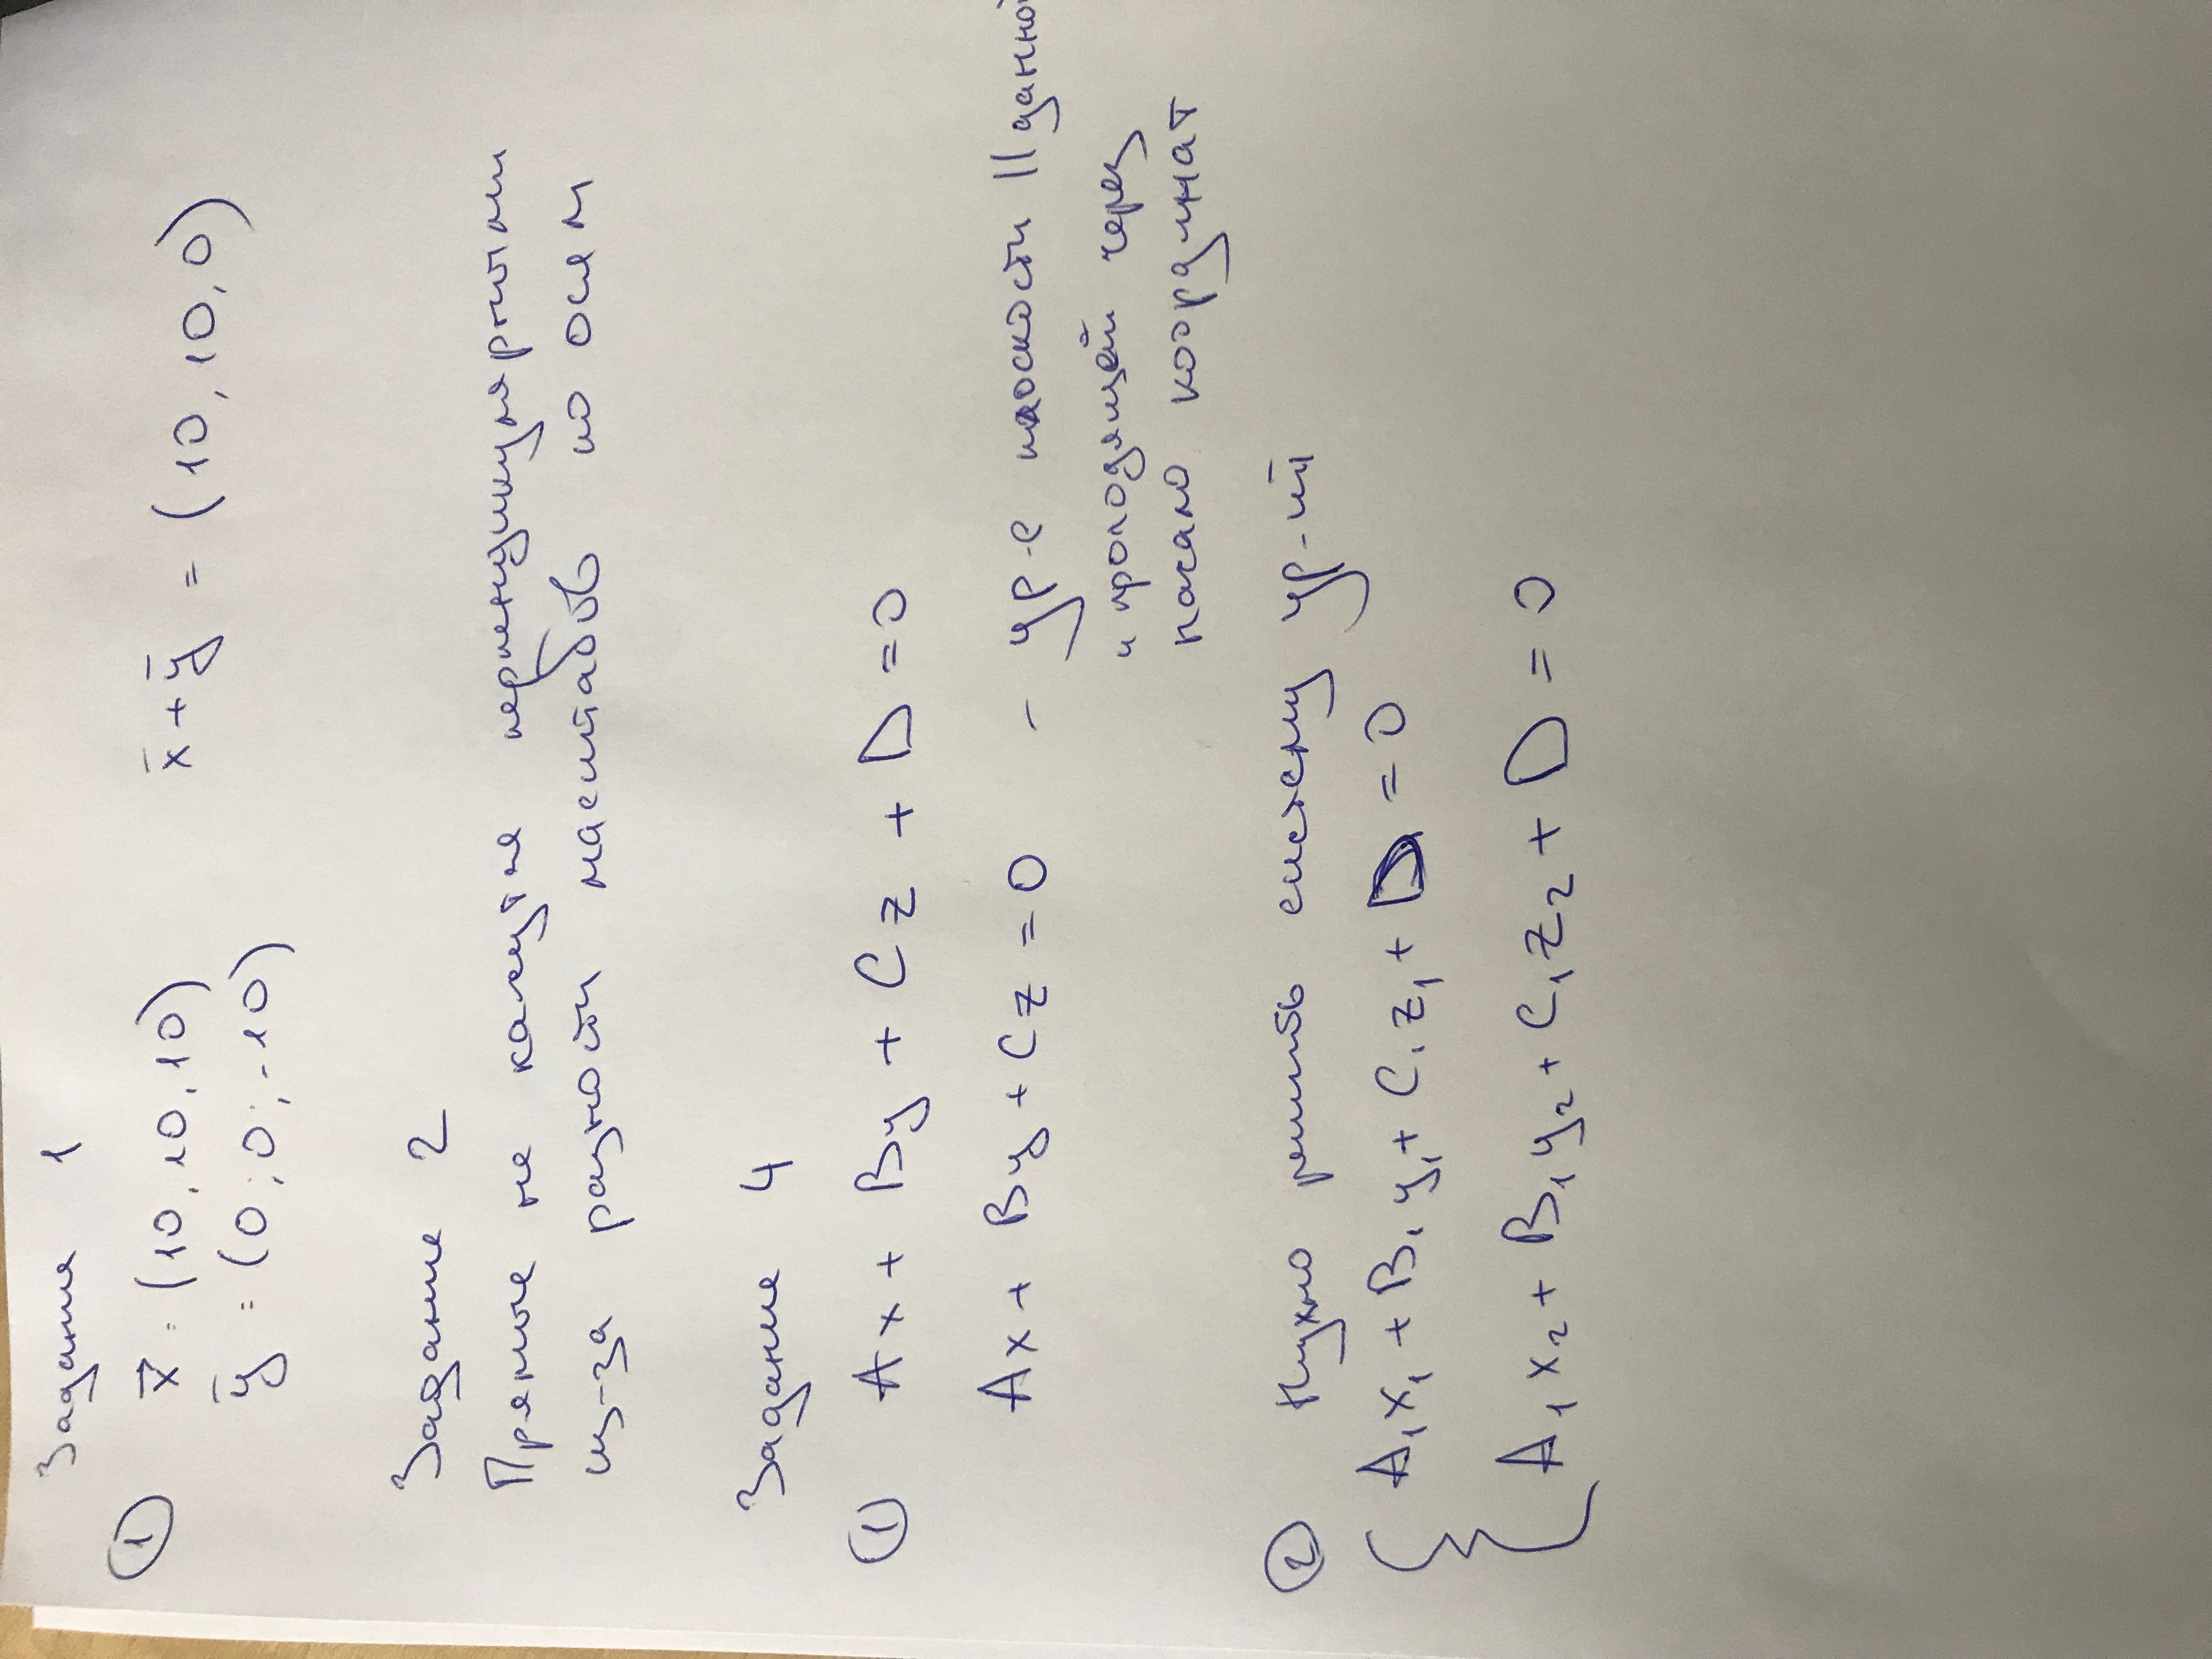 Задание 1
① x⃗ = (10, 10, 10) x̄ + ȳ = (10, 10, 0)
ȳ = (0; 0; -10)
Задание 2
Прямые не кажутся перпендикулярными
из-за разности масштабов по осям
Задание 4
① Ax + By + Cz + D = 0
Ax + By + Cz = 0 - ур-е плоскости || данной
и проходящей через
начало координат
② Нужно решить систему ур-ий
A₁x₁ + B₁y₁ + C₁z₁ + D = 0
A₁x₂ + B₁y₂ + C₁z₂ + D = 0